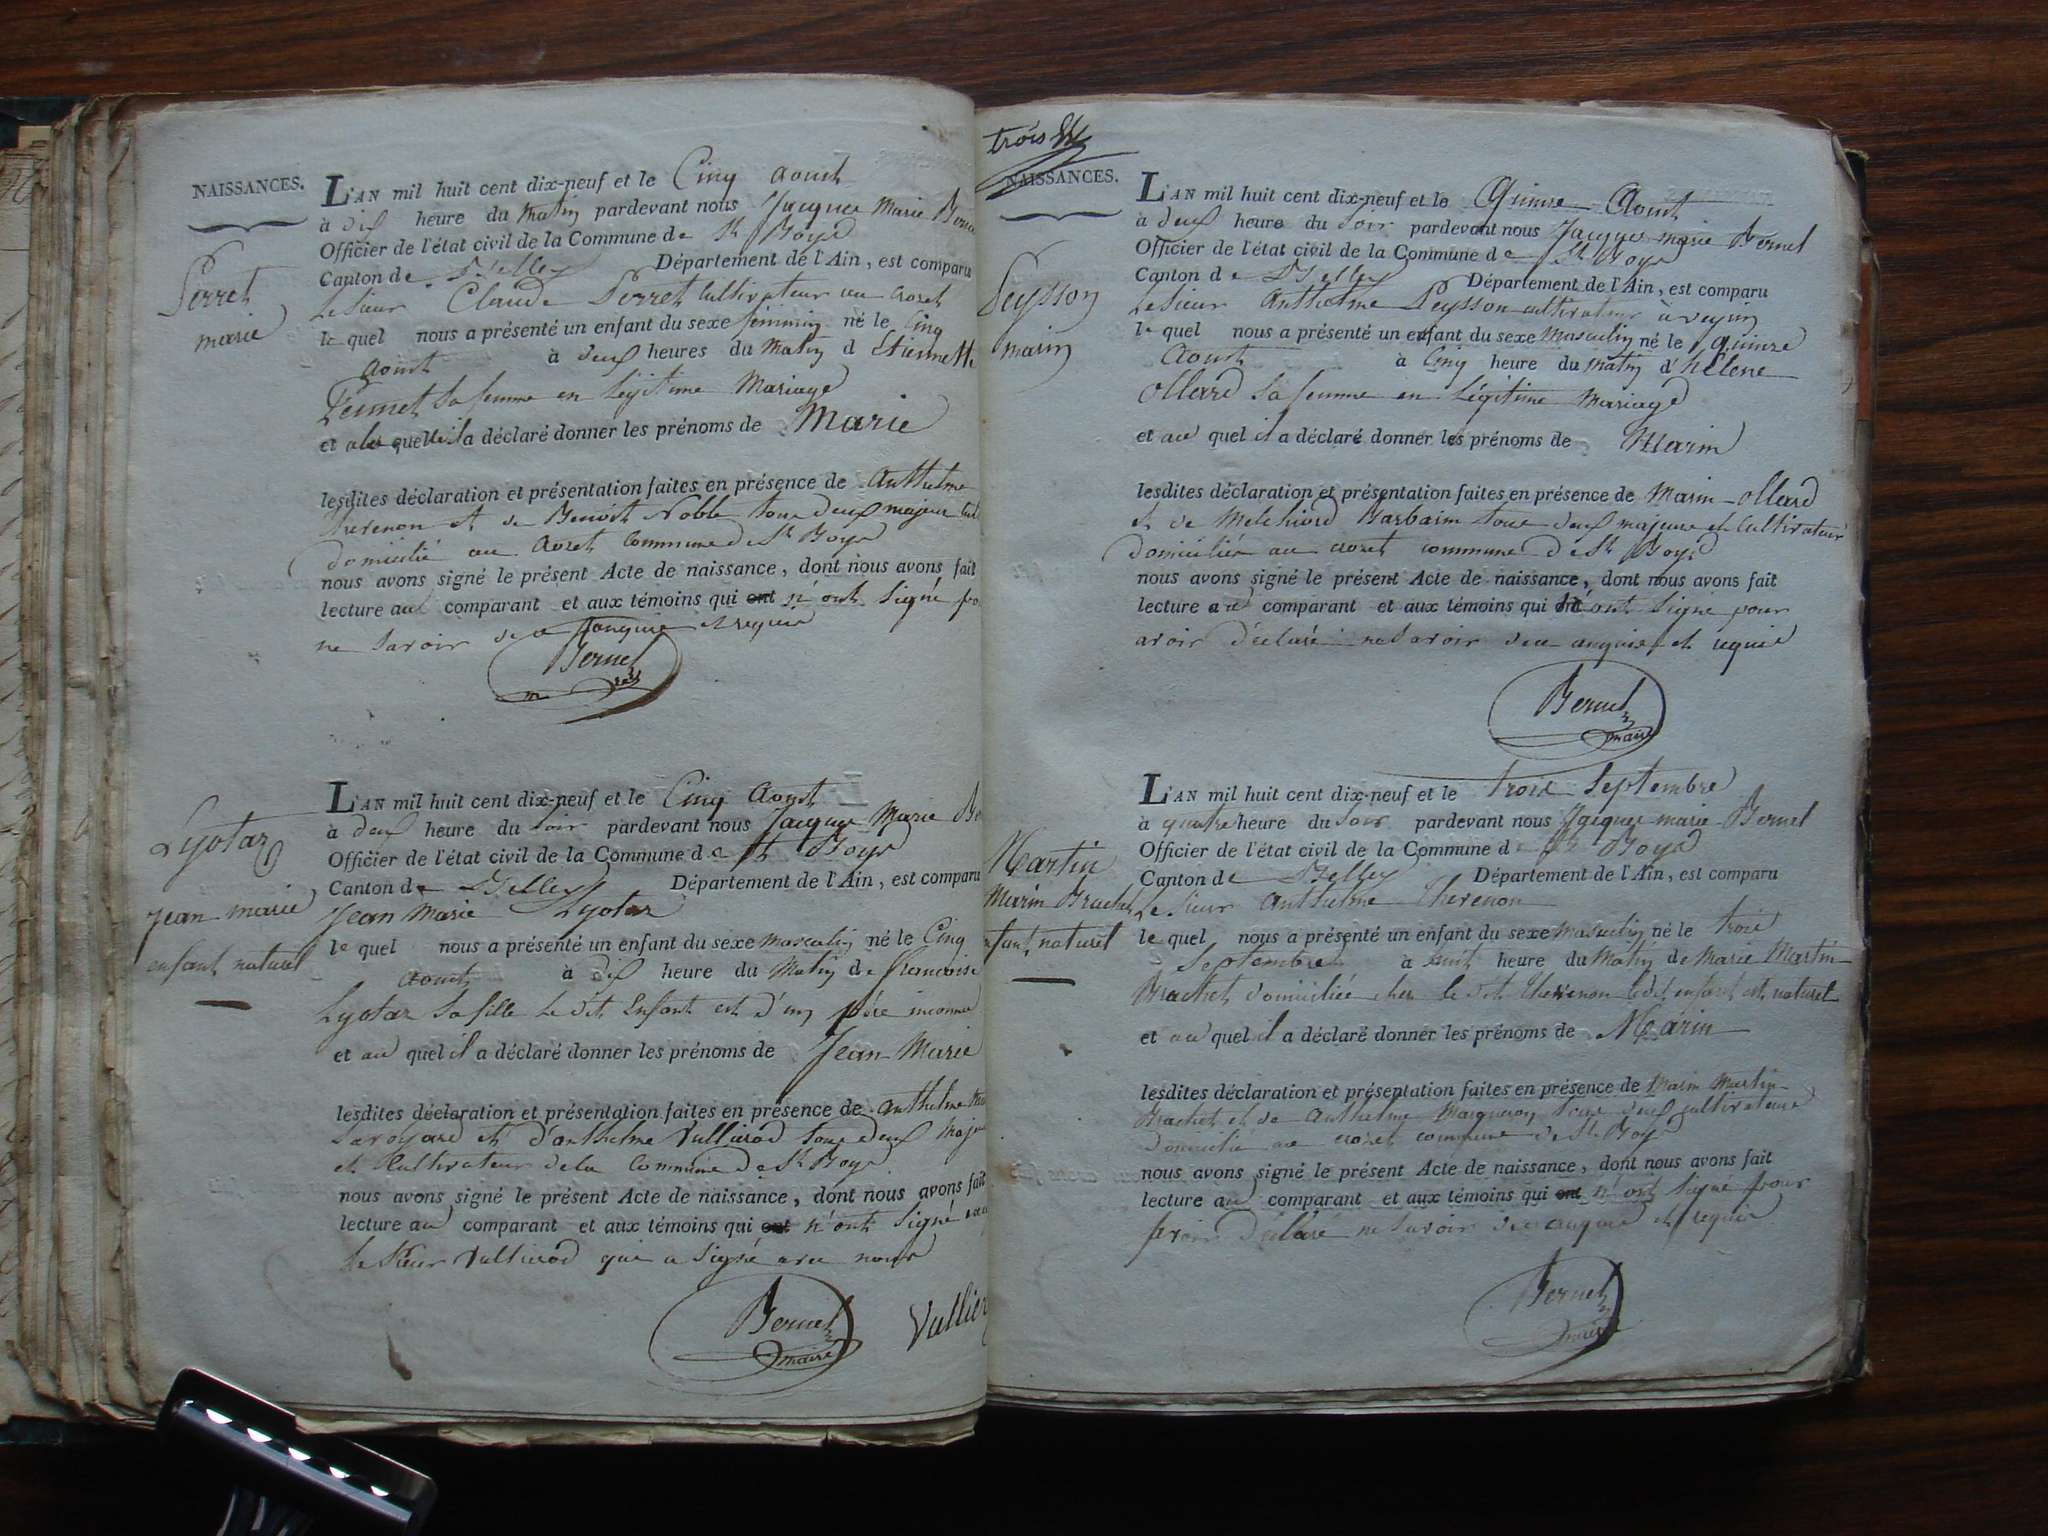 NAISSANCES.
Perret
marie
L'AN mil huit cent dix-neuf et le Cinq aoust
à dix heure du Matin pardevant nous Jacques Marie
Officier de l'état civil de la Commune de St Boys
Canton de Belley Département de l'Ain, est comparu
Le Sieur Claude Perret Cultivateur au crozet
le quel nous a présenté un enfant du sexe féminin né le Cinq
aoust à deux heures du Matin d Etiennette
sa femme en Légitime Mariage
et a la quelle il a déclaré donner les prénoms de Marie
lesdites déclaration et présentation faites en présence de Anthelme
thevenon et de Benoit Noble tous deux majeur
domicilié au crozet Commune de St Boys
nous avons signé le présent Acte de naissance, dont nous avons fait
lecture au comparant et aux témoins qui ont n'ont signé
ne savoir de ce enquis et requis
Bernel
Lyotaz
jean marie
enfant naturel
L'AN mil huit cent dix-neuf et le Cinq Aoust
à deux heure du soir pardevant nous Jacques Marie
Officier de l'état civil de la Commune de St Boys
Canton de Belley Département de l'Ain, est comparu
Jean Marie Lyotaz
le quel nous a présenté un enfant du sexe masculin né le Cinq
aoust à dix heure du Matin de francoise
Lyotaz sa fille Le dit Enfant est d'un père inconnu
et au quel il a déclaré donner les prénoms de Jean Marie
lesdites déclaration et présentation faites en présence de anthelme
Savoyard et d'anthelme Vullierod tous deux
et Cultivateur de la Commune de St Boys
nous avons signé le présent Acte de naissance, dont nous avons fait
lecture au comparant et aux témoins qui ont n'ont signé
le Sieur Vullierod qui a signé avec nous
Bernel
maire
Vullier
trois
NAISSANCES.
Peysson
marin
L'AN mil huit cent dix-neuf et le Quinze Aoust
à deux heure du soir pardevant nous Jacques marie Bernel
Officier de l'état civil de la Commune de St Boys
Canton de Belley Département de l'Ain, est comparu
Le Sieur anthelme Peysson cultivateur à veyrin
le quel nous a présenté un enfant du sexe masculin né le quinze
Aoust à Cinq heure du matin d'hélene
Ollard sa femme en Légitime Mariage
et au quel il a déclaré donner les prénoms de Marin
lesdites déclaration et présentation faites en présence de Marin Ollard
et de Melchiord Barbarin tous deux majeurs et Cultivateur
Domiciliés au crozet commune de St Boys
nous avons signé le présent Acte de naissance, dont nous avons fait
lecture au comparant et aux témoins qui n'ont signé pour
avoir déclaré ne savoir de ce enquis et requis
Bernel
maire
Martin
Marin Brachet
enfant naturel
L'AN mil huit cent dix-neuf et le trois Septembre
à quatre heure du soir pardevant nous Jacques marie Bernel
Officier de l'état civil de la Commune de St Boys
Canton de Belley Département de l'Ain, est comparu
Le Sieur anthelme thevenon
le quel nous a présenté un enfant du sexe masculin né le trois
Septembre à huit heure du Matin de Marie Martin
Brachet domiciliée chez le dit thevenon le dit enfant est naturel
et au quel il a déclaré donner les prénoms de Marin
lesdites déclaration et présentation faites en présence de Marin Martin
Brachet et de anthelme Maigneron tous deux cultivateurs
domicilié au crozet commune de St Boys
nous avons signé le présent Acte de naissance, dont nous avons fait
lecture au comparant et aux témoins qui ont n'ont signé pour
avoir déclaré ne savoir de ce enquis et requis
Bernel
maire